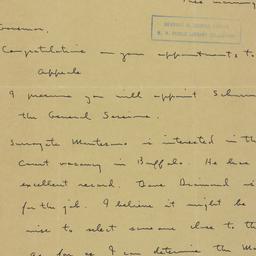 Tues morning
Governor,
Congratulations on your appointments to
Appeals
I presume you will appoint
the General Sessions.
Surrogate is interested in th
Court vacancy in Buffalo. He has
excellent record. Dave is
for the job. I believe it might be
wise to select someone close to th
as far as I can determine the